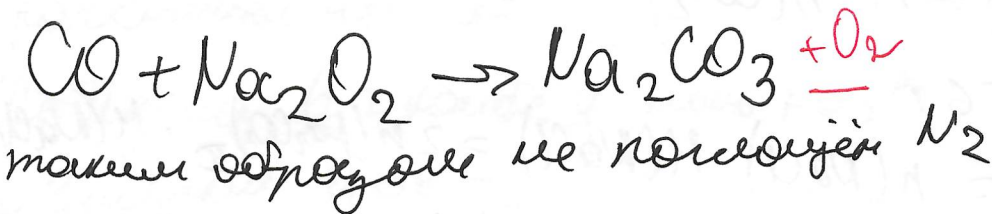 CO + Na₂O₂ → Na₂CO₃ + O₂
таким образом не поглощён N₂